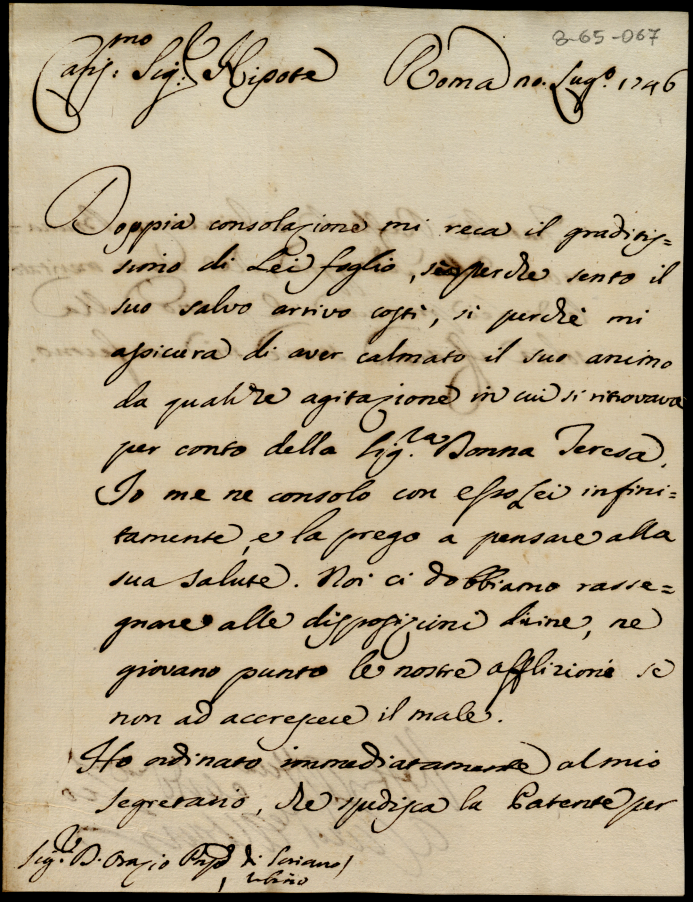 3-65-067
Cariss.mo Sig.r Nipote Roma 20. Lug.o 1746
Doppia consolazione mi reca il graditis=
simo di Lei foglio, si perche sento il
suo salvo arrivo costì, si perchè mi
assicura di aver calmato il suo animo
da qualche agitazione in cui si ritrovava
per conto della Sig.ra Donna Teresa.
Io me ne consolo con esso Lei infini=
tamente, e la prego a pensare alla
sua salute. Noi ci dobbiamo rasse=
gnare alle disposizioni divine, ne
giovano punto le nostre afflizioni se
non ad accrescere il male.
Ho ordinato immediatamente al mio
segretario, che spedisca la Patente per
Sig.r D. Orazio di